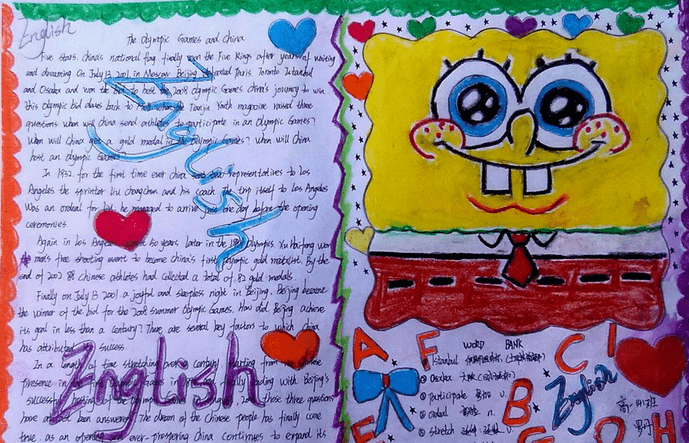 English
The Olympic Games and China
Five stars. China's national flag finally won the Five Rings after years of waiting
and dreaming On July 13 2001 in Moscow Beijing Paris Toronto Istanbul
and Osaka and won the bid to host the 2008 olympic Games china's journey to win
this olympic bid dates back to Tianjin Youth magazine raised three
questions when will China send athletes to participate in an Olympic Games?
When will China get a gold medal in the Olympic Games? when will China
host an olympic Games
In 1932 for the first time ever china representatives to Los
Angeles the sprinter Liu changchun and his coach The trip itself to Los Angeles
Was an ordeal for he managed to arrive just one day before the opening
ceremonies
Again in Los Angeles years later in the Olympics, Xu Hai-feng won
men's free shooting event to become china's first olympic gold medalist. By the
end of 2002 chinese athletes had collected a total of gold medals
Finally on July 13 2001 a joyful and sleepless night in Beijing, Beijing became
the winner of the bid for the 2008 summer Olympic Games. How did Beijing achieve
its goal in less than a century? There are several key factors to which china
has attributed success
In a length of time stretching over century starting from
presence in finally ending with Beijing's
success hosting of those three questions
have been answered The dream of the Chinese people has finally come
true. as an opening ever-prospering China continues to expand its
English
English
WORD BANK
Istanbul
Osaka
participate v.
ordeal n.
stretch v.
A
F
C
I
B
E
G
O
H
English